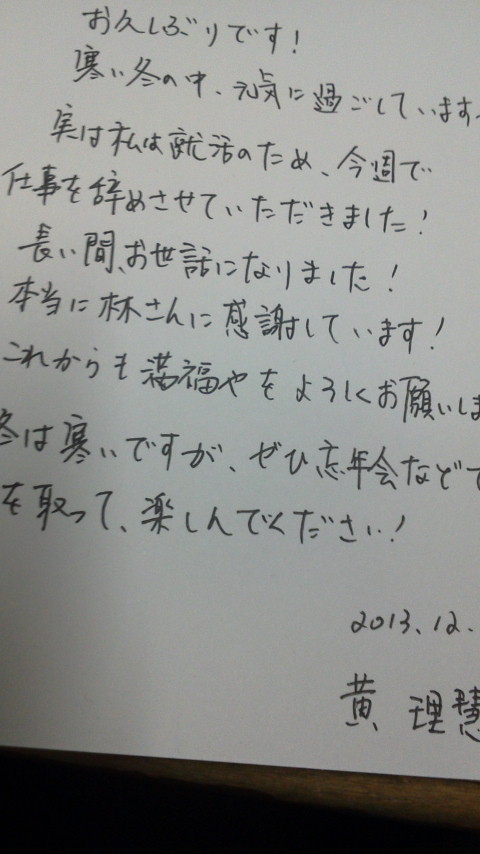 お久しぶりです!
寒い冬の中、元気に過ごしています
実は私は就活のため、今週で
仕事を辞めさせていただきました!
長い間、お世話になりました!
本当に林さんに感謝しています!
これからも満福やをよろしくお願いしま
冬は寒いですが、ぜひ忘年会などで
を取って、楽しんでください!
2013.12.
黄 理慧